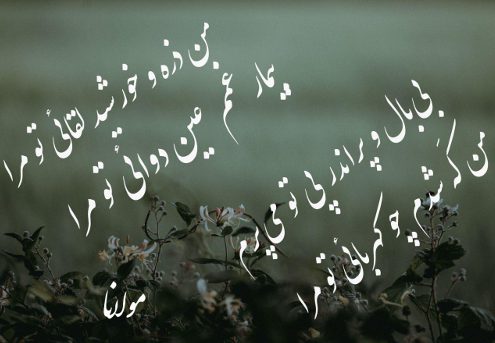 من ذره و خورشید لقائی تو مرا
بیمار غمم عین دوائی تو مرا
بی بال و پر اندر پی تو می پرم
من کَه شدم چو کهربائی تو مرا
مولانا